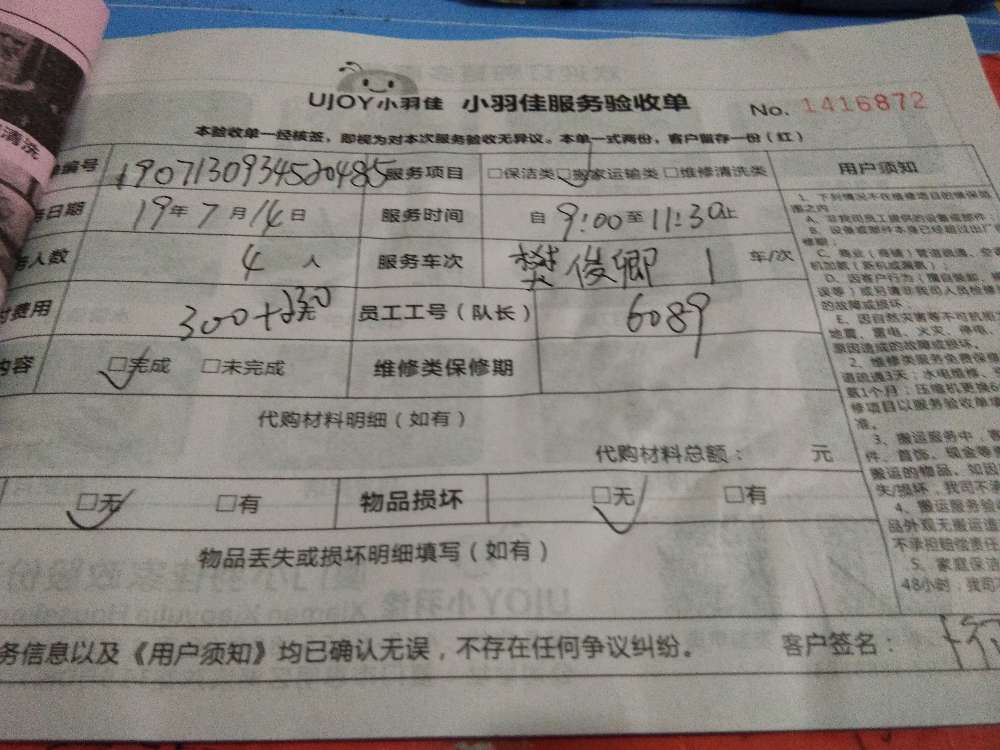 清洗
UJOY小羽佳 小羽佳服务验收单 No. 1416872
本验收单一经核签，即视为对本次服务验收无异议。本单一式两份，客户留存一份（红）
编号 1907130934520485 服务项目 □保洁类 □搬家运输类 □维修清洗类 用户须知
日期 19年7月14日 服务时间 自9:00至11:30止
人数 4人 服务车次 樊俊卿 1 车/次
费用 300+ 员工工号（队长） 6089
内容 □完成 □未完成 维修类保修期
代购材料明细（如有）
代购材料总额： 元
□无 □有 物品损坏 □无 □有
物品丢失或损坏明细填写（如有）
务信息以及《用户须知》均已确认无误，不存在任何争议纠纷。 客户签名：
1、下列情况不在维修项目的维保范
围之内
A、非我司员工提供的设备或部件；
B、设备或部件本身已经超过出厂
修期；
C、商业（商铺）管道疏通、空
机加氨（新机或漏氨）
D、因客户行为（擅自装卸、
误等）或另请非我司人员检修
的故障或损坏；
E、因自然灾害等不可机拒
地震、雷电、火灾、停电、
原因造成的故障或损坏。
2、维修类服务免费保修
道疏通3天；水电维修、
氨1个月；压缩机更换6
修项目以服务验收单填
准。
3、搬运服务中，
件、首饰、现金等
搬运的物品，如因
失/损坏，我司不承
4、搬运服务验收
品外观无搬运造
不承担赔偿责任
5、家庭保洁
48小时，我司